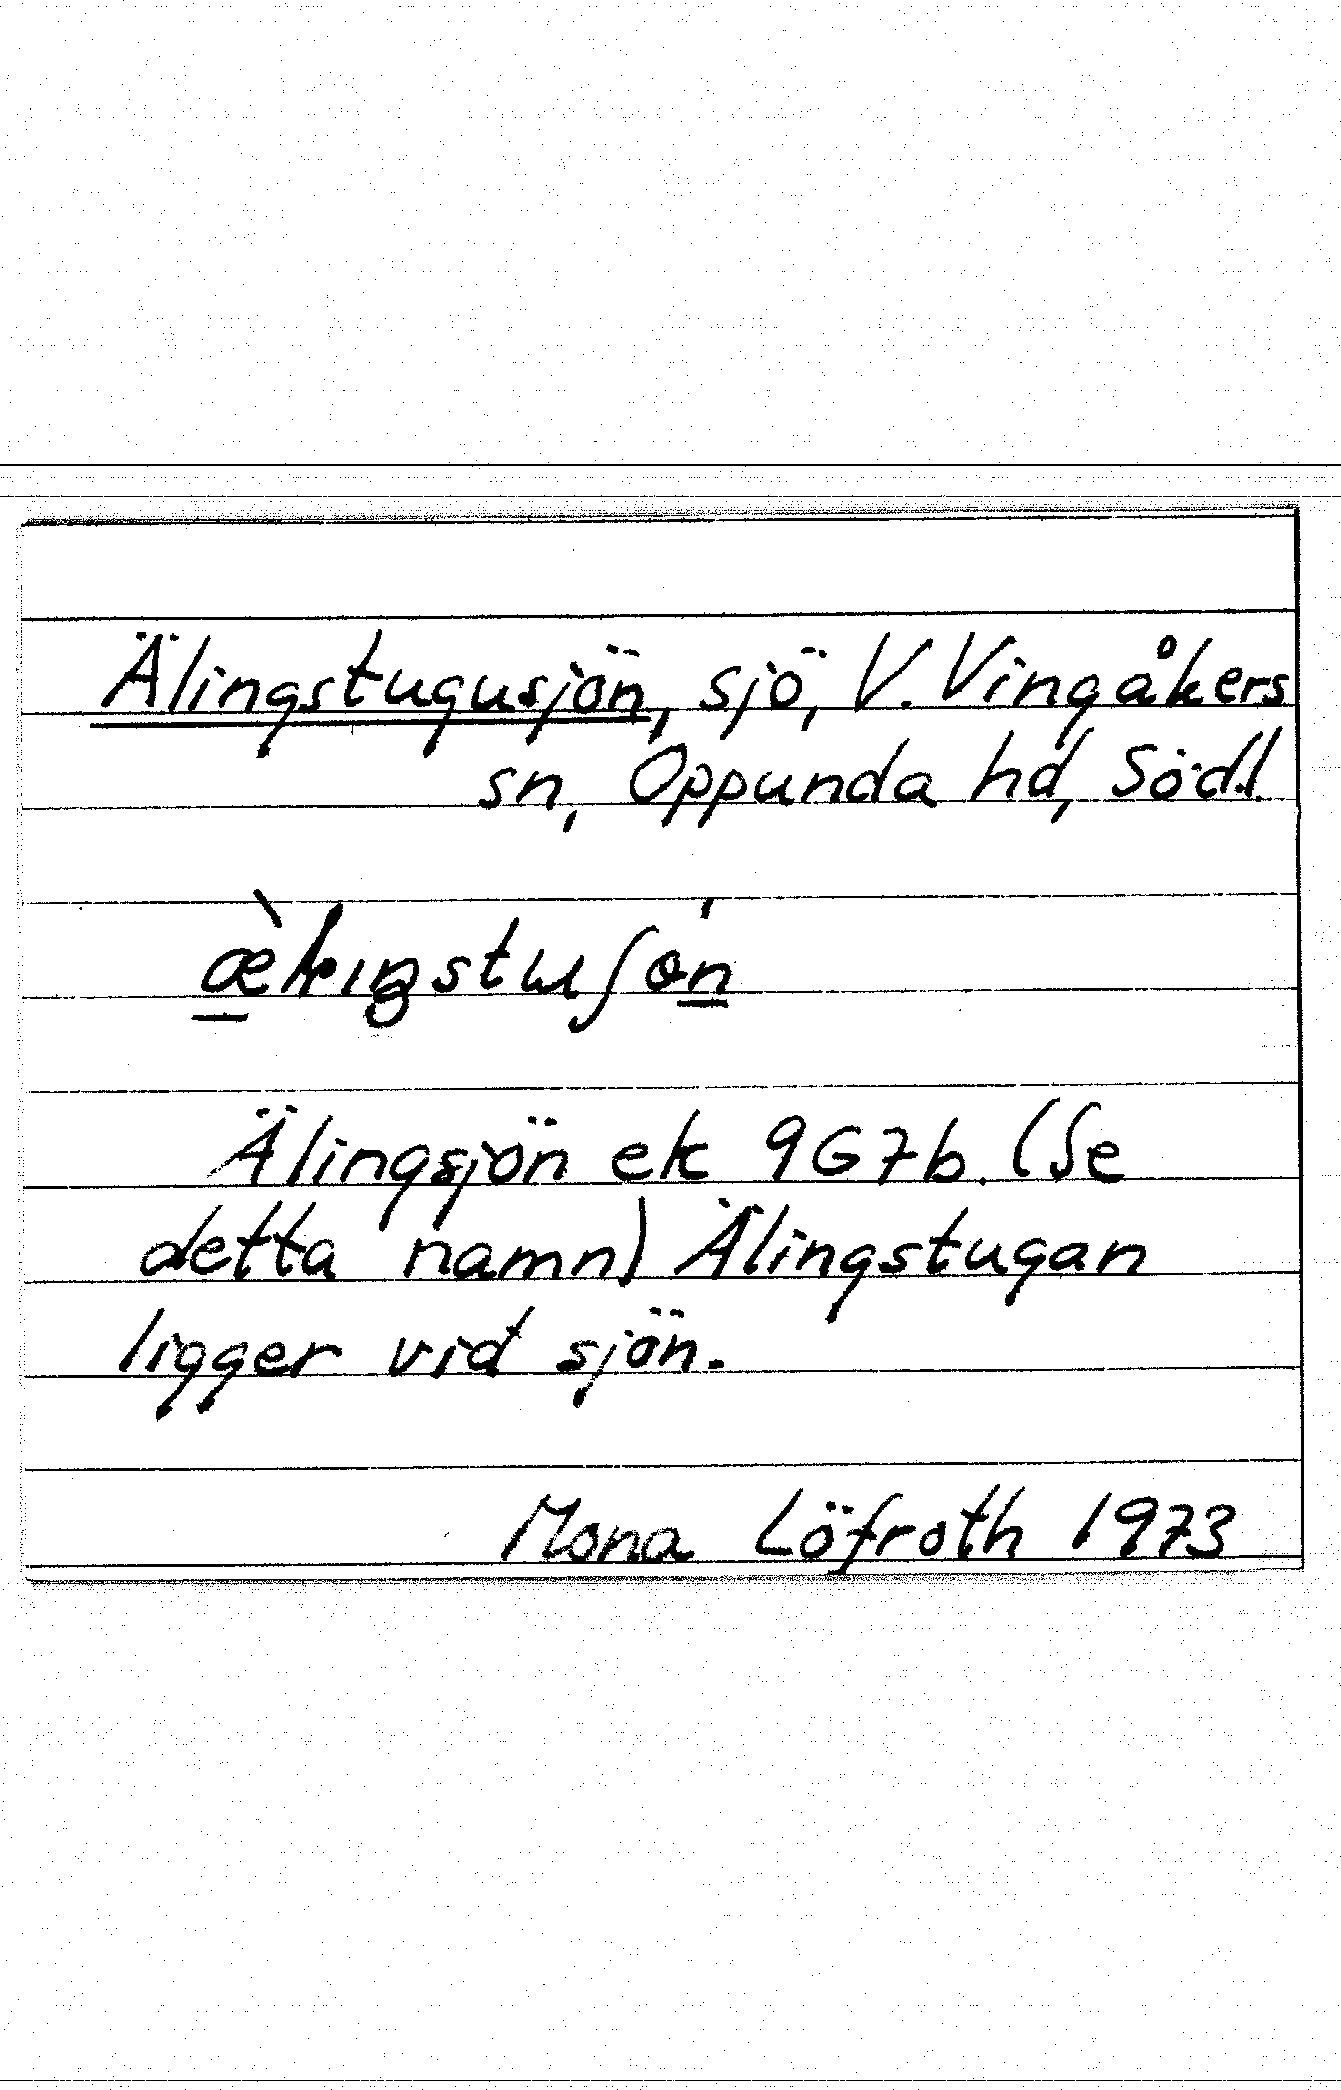 Älingstugusjön, sjö, V. Vingåkers
sn, Oppunda hd, Södl.
Älingsjön ek 9G7b. (Se
detta namn) Älingstugan
ligger vid sjön.
Mona Löfroth 1973